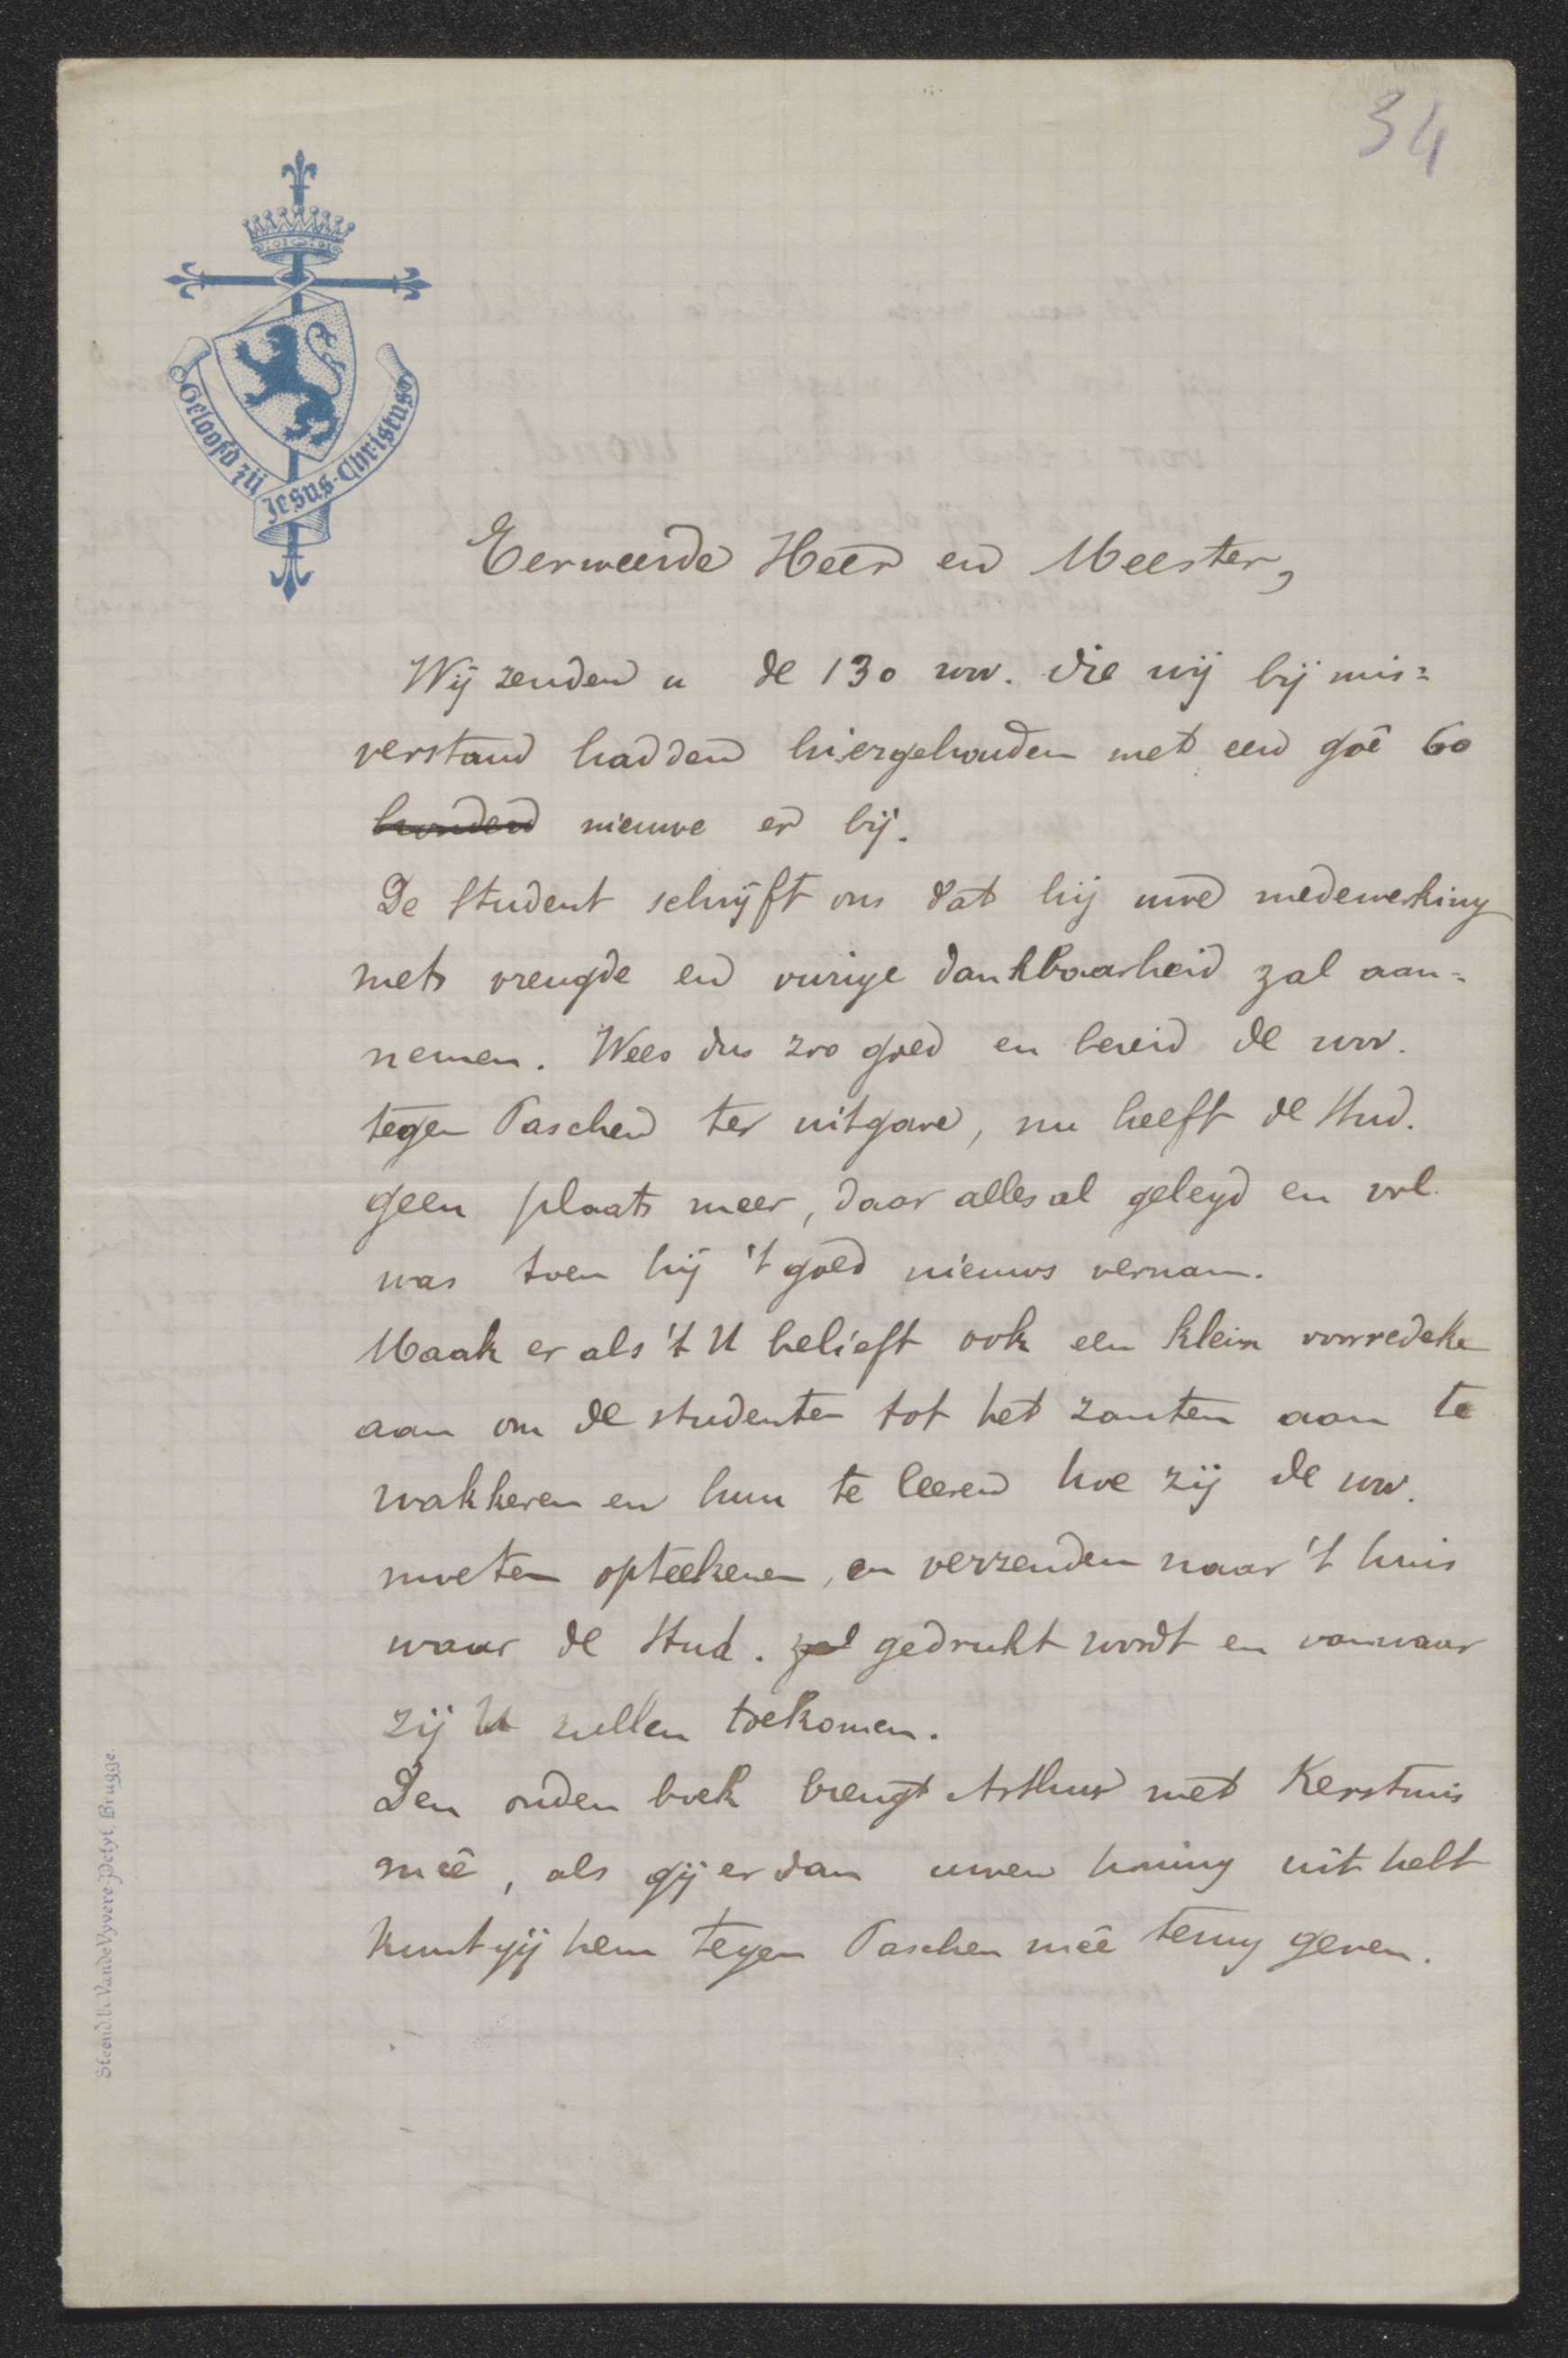 34
Geloofd zij Jesus-Christus
Eerweerde Heer en Meester,
Wij zenden u de 130 ww. die wij bij mis=
verstand hadden hiergehouden met een goê 60
honderd nieuwe er bij.
De Student schrijft ons dat hij uwe medewerking
met vreugde en vurige dankbaarheid zal aan=
nemen. Wees dus zoo goed en bereid de ww.
tegen Paschen ter uitgave, nu heeft de Stud.
geen plaats meer, daar alles al geleyd en vol
was toen hij 't goed nieuws vernam.
Maak er als 't U belieft ook een klein voorredeke
aan om de studenten tot het zanten aan te
wakkeren en hun te leeren hoe zij de ww.
moeten opteekenen, en verzenden naar 't huis
waar de Stud. zal gedrukt wordt en vanwaar
zij U zullen toekomen.
Den ouden boek brengt Arthur met Kerstmis
meê, als gij er dan uwen honing uit helt
kunt gij hem tegen Paschen meê terug geven.
Steend. K. VandeVyvere-Petyt, Brugge.